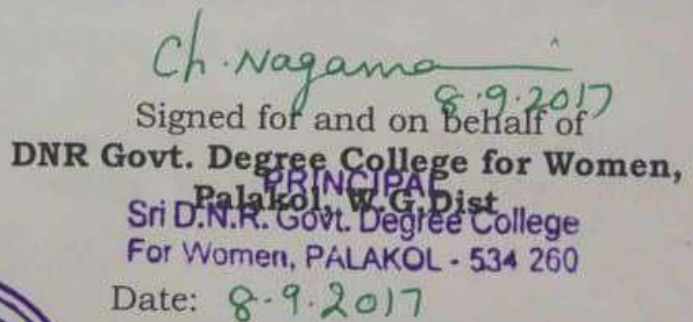 Ch. Nagama
8.9.2017
Signed for and on behalf of
DNR Govt. Degree College for Women,
Palakol, W.G.Dist
PRINCIPAL
Sri D.N.R. Govt. Degree College
For Women, PALAKOL - 534 260
Date: 8-9-2017